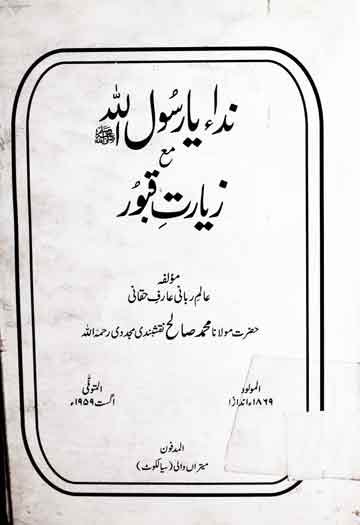 نداء یا رسول اللہ ﷺ
مع
زیارتِ قبور
مؤلفہ
عالم ربانی عارف حقانی
حضرت مولانا محمد صالح نقشبندی مجددی رحمۃ اللہ
المولود
۱۸۶۹ء اندازاً
المتوفّٰی
اگست ۱۹۵۹ء
المدفون
میتراں والی (سیالکوٹ)